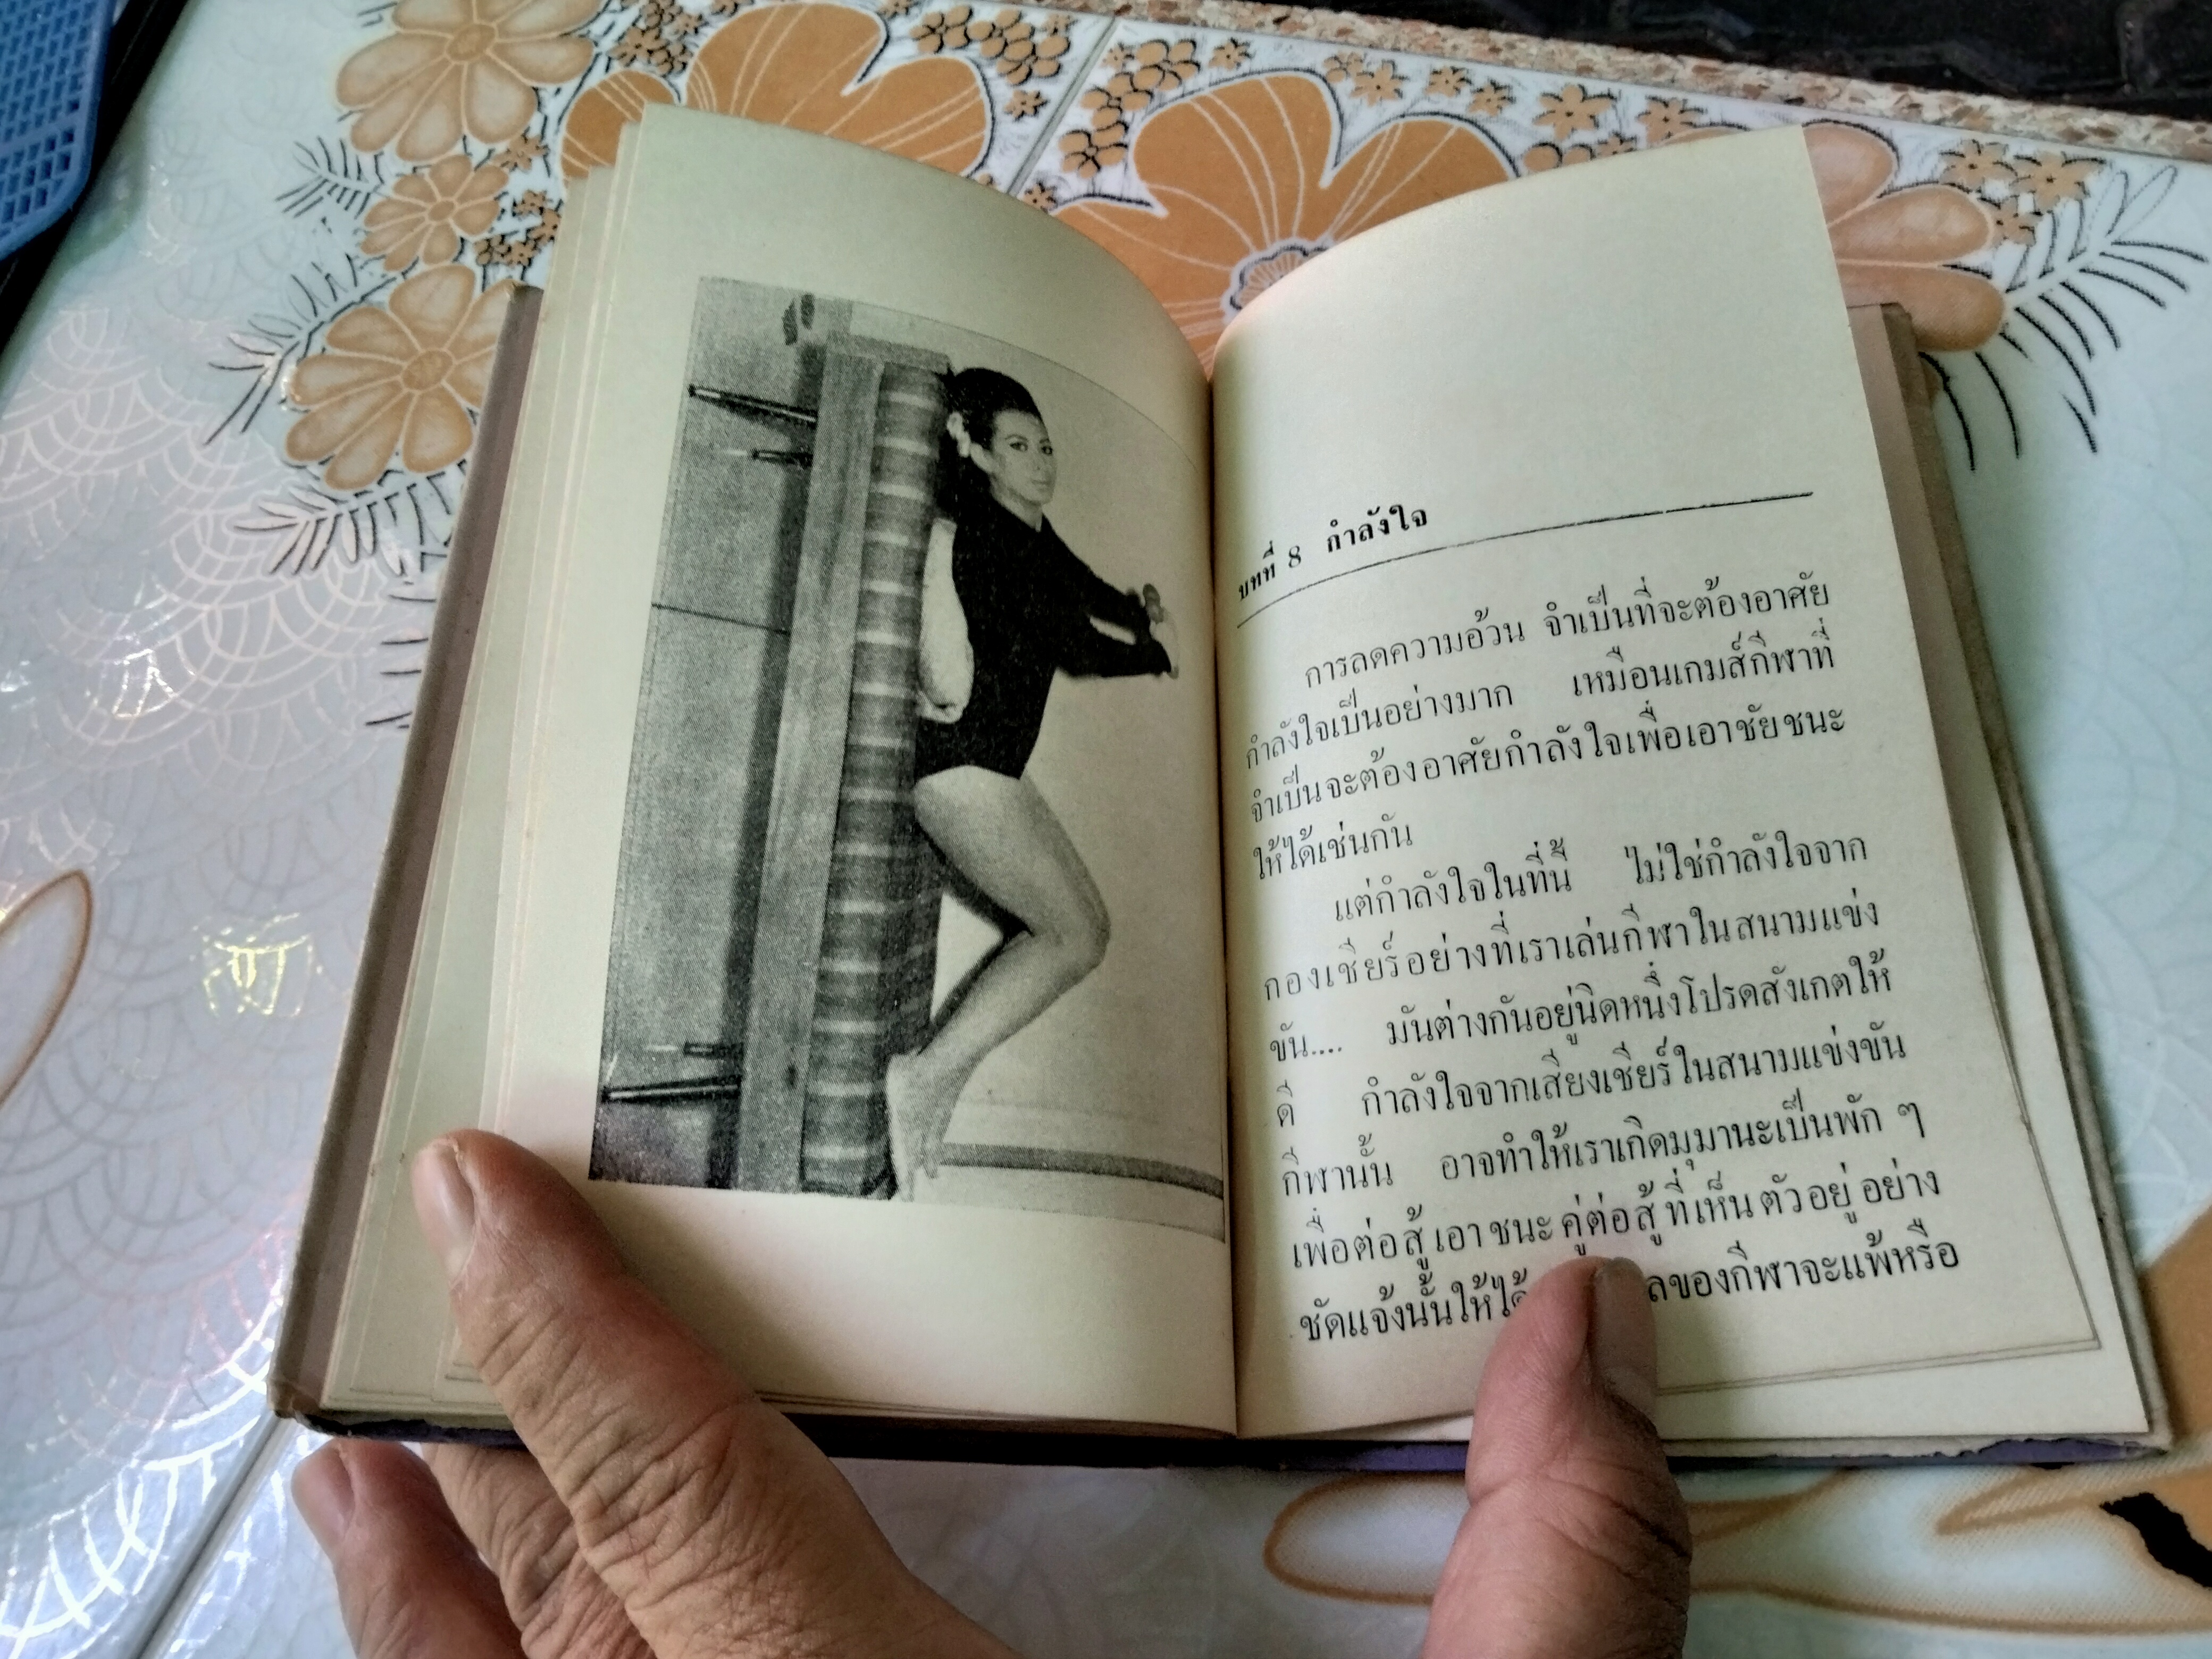 บทที่ 8 กำลังใจ
การลดความอ้วน จำเป็นที่จะต้องอาศัย
กำลังใจเป็นอย่างมาก เหมือนเกมส์กีฬาที่
จำเป็นจะต้องอาศัยกำลังใจเพื่อเอาชัยชนะ
ให้ได้เช่นกัน
แต่กำลังใจในที่นี้ ไม่ใช่กำลังใจจาก
กองเชียร์อย่างที่เราเล่นกีฬาในสนามแข่ง
ขัน.... มันต่างกันอยู่นิดหนึ่งโปรดสังเกตให้
ดี กำลังใจจากเสียงเชียร์ในสนามแข่งขัน
กีฬานั้น อาจทำให้เราเกิดมุมานะเป็นพัก ๆ
เพื่อต่อสู้เอาชนะคู่ต่อสู้ที่เห็นตัวอยู่อย่าง
ชัดแจ้งนั้นให้ได้ ของกีฬาจะแพ้หรือ